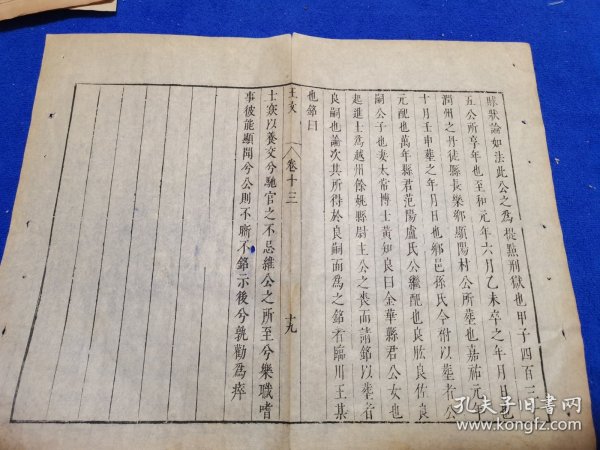 賕狀論如法此公之為提點刑獄也甲子四百三
五公所享年也至和元年六月乙未卒之年月日也
潤州之丹徒縣長樂鄉顯陽村公所塟也嘉祐元
十月壬申塟之年月日也鄉邑孫氏今祔以塟者公
元配也萬年縣君范陽盧氏公繼配也良肱良佐良
嗣公子也妻太常博士黃知良曰金華縣君公女也
起進士為越州餘姚縣尉主公之喪而請銘以塟者
良嗣也論次其所得於良嗣而為之銘者臨川王某
也銘曰
王文
卷十三
十九
士窾以養交兮馳官之不忌維公之所至兮樂職嗜
事彼能顯聞兮公則不晰不銘示後兮孰勸為瘁
孔夫子旧书网
www.kongfz.com